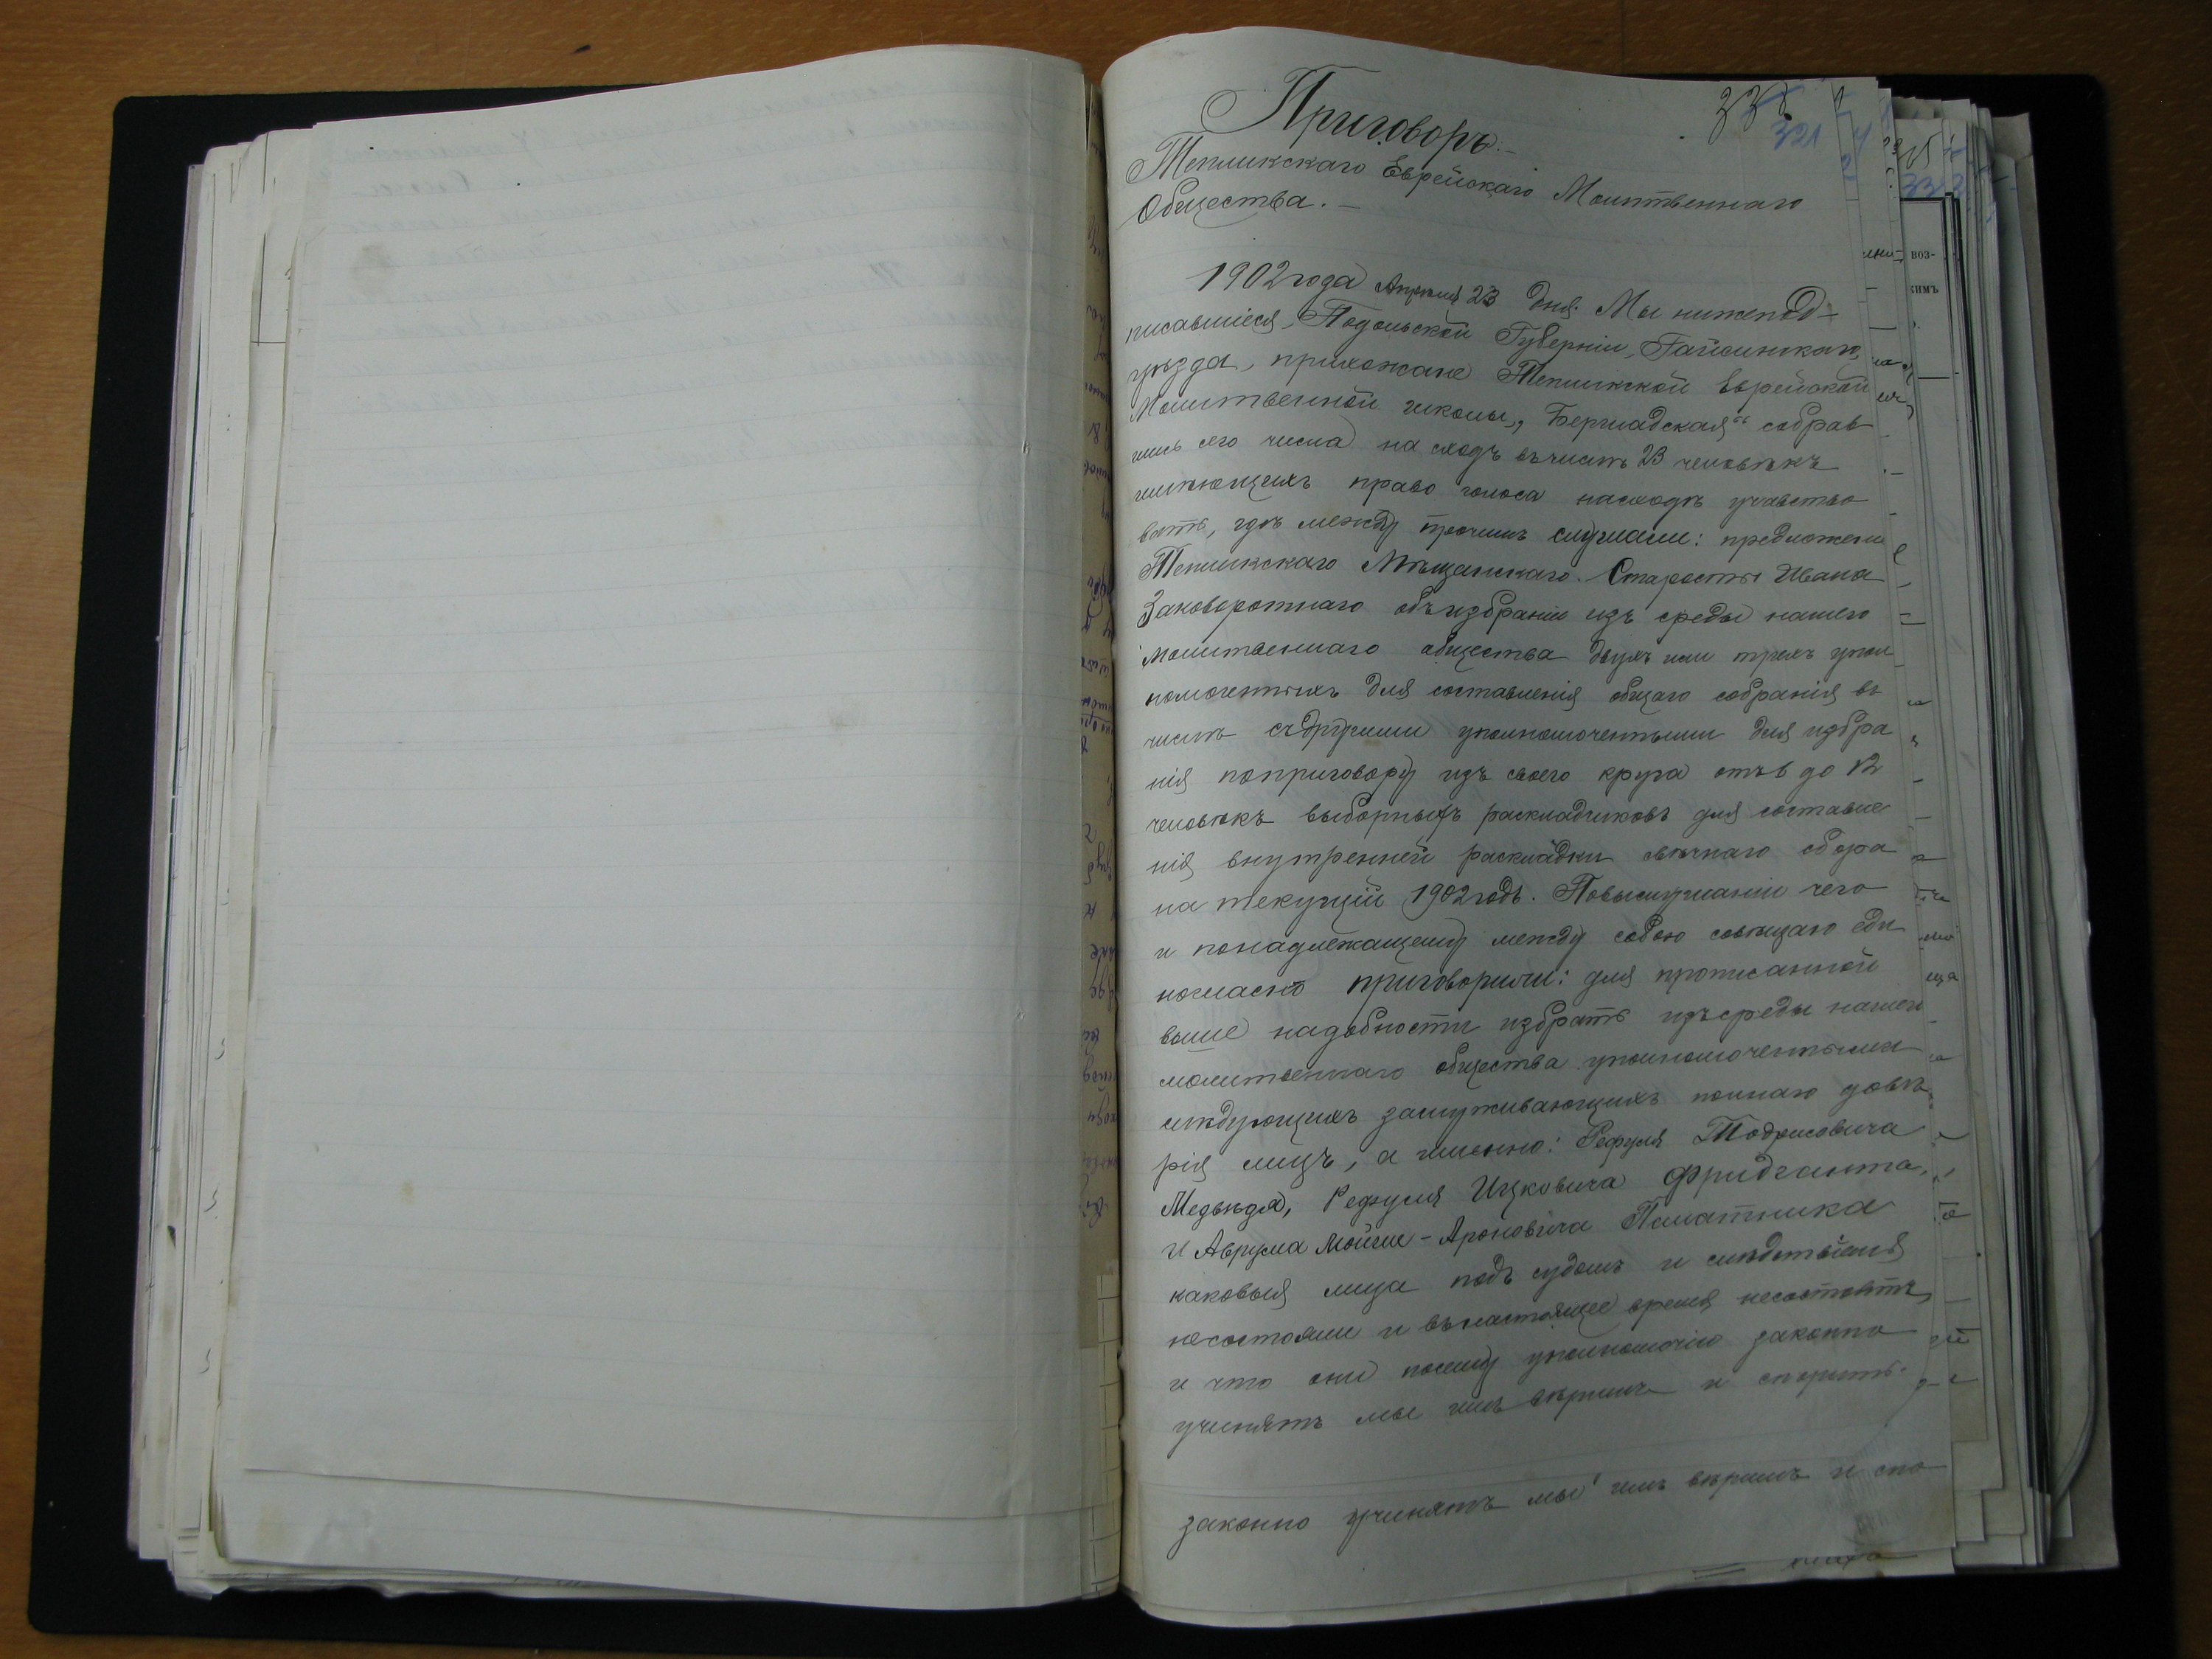 338
321
Приговоръ.-
Тепликскаго Еврейскаго Молитвеннаго
Общества.-
1902 года Апрѣля 23 дня. Мы нижепод-
писавшіеся, Подольской Губерніи, Гайсинскаго
уѣзда, прихожане Тепликской Еврейской
Молитвенной школы „Бершадская“ собрав
шись сего числа на сходъ въ числѣ 23 человѣкъ
имѣющихъ право голоса на сходѣ учавство
вать, гдѣ между прочимъ слушали: предложеніе
Тепликскаго Мѣщанскаго Старосты Ивана
Заковоротнаго объ избраніи изъ среды нашего
молитвеннаго общества двухъ или трехъ упол
номоченныхъ для составленія общаго собранія въ
числѣ съ другими уполномоченными для избра
нія по приговору изъ своего круга отъ 6 до 12
человѣкъ выборныхъ раскладчиковъ для составле
нія внутренней раскладки свѣчнаго сбора
на текущій 1902 годъ. По выслушаніи чего
и по надлежащему между собою совѣщаю еди
ногласно приговорили: для прописанной
выше надобности избрать изъ среды нашего
молитвеннаго общества уполномоченными
слѣдующихъ заслуживающихъ полнаго довѣ
рія лицъ, а именно: Рефуля Тодрисовича
Медвѣдя, Рефуля Ицковича Фридганта,
и Аврума Мойше-Ароновича Палатника
каковыя лица подъ судомъ и слѣдствіемъ
не состояли и въ настоящее время не состоятъ,
и что они по сему уполномочію законно
учинятъ мы имъ вѣримъ и спорить
законно учинятъ мы имъ вѣримъ и спо